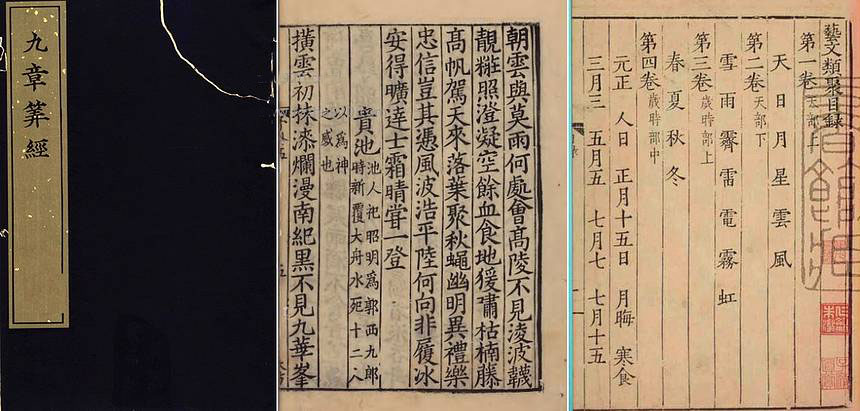 九章筭經
朝雲與莫雨何處會高陵不見淩波韈
靚糚照澄凝空餘血食地猨嘯枯楠藤
高帆駕天來落葉聚秋蠅幽明異禮樂
忠信豈其憑風波浩平陸何向非履冰
安得曠達士霜晴嘗一登
貴池池人祀昭明爲郭西九郎
時新覆大舟水死十二人
以爲神
之威也
橫雲初抹漆爛漫南紀黑不見九華峯
藝文類聚目錄
第一卷天部上
天 日 月 星 雲 風
第二卷天部下
雪 雨 霽 雷 電 霧 虹
第三卷歲時部上
春 夏 秋 冬
第四卷歲時部中
元正 人日 正月十五日 月晦 寒食
三月三 五月五 七月七 七月十五